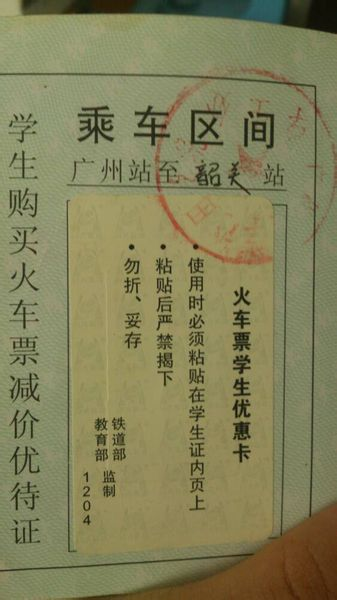 学生购买火车票减价优待证
乘车区间
广州站至韶关站
火车票学生优惠卡
• 使用时必须粘贴在学生证内页上
• 粘贴后严禁揭下
• 勿折、妥存
铁道部
教育部 监制
1204